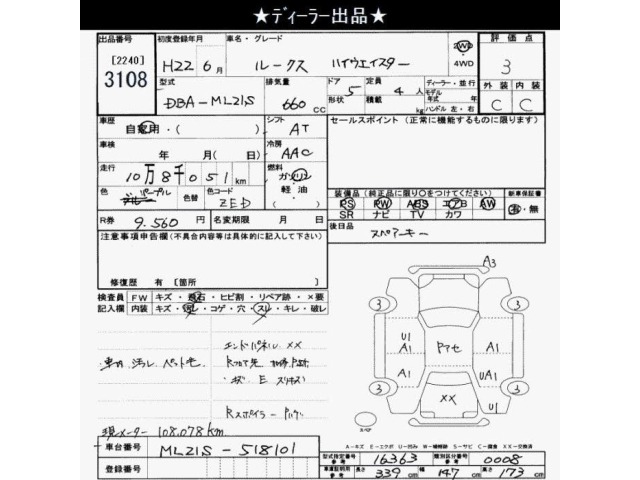 ★ディーラー出品★
出品番号 初度登録年月 車名・グレード 評価点
[2240] H22年6月 ルークス ハイウエイスター 2WD・4WD 3
3108
型式 排気量 ドア 定員 ディーラー・並行 外装 内装
DBA-ML21S 660cc 形状 5 積載 4人 kg モデル年式 年 ハンドル 左・右 C C
車歴 シフト セールスポイント (正常に機能するものに限ります)
自家用・( ) AT
車検 冷房
年 月(日) AAC
走行 燃料
10万8千051km ガソリン・軽油
色 色替 色コード 装備品(純正品に限り〇をつけてください) 新車保証書
パープル ZED PS PW ABS エアB AW 有・無
SR ナビ TV カワ
R券 9,560円 名変期限 月 日 後日品 スペアーキー
注意事項申告欄(不具合内容等は具体的に記入して下さい)
修復歴 有〔箇所 〕
検査員記入欄 FW キズ・飛石・ヒビ割・リペア跡・×要
内装 キズ・汚レ・コゲ・穴・スレ・キレ・破レ
車内 汚れ ペット毛
エンドパネル XX
キズ E
Rスポイラー
現メーター 108,078km
車台番号 ML21S-518101
登録番号
A3
3 3
U1 A1 A1
Pマセ
A1 UA1
3 3
XX U1
スペア
A-キズ E-エクボ U-凹み W-補修跡 S-サビ C-腐食 XX-交換済
型式指定番号 参考 16363 類別区分番号 参考 0008
車庫証明用 参考 長さ 339cm 幅 147cm 高さ 173cm